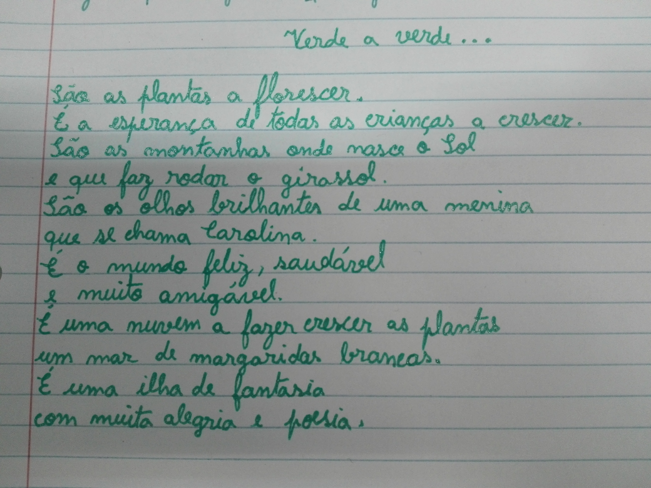 Verde a verde...
São as plantas a florescer.
É a esperança de todas as crianças a crescer.
São as montanhas onde nasce o Sol
e que faz rodar o girassol.
São os olhos brilhantes de uma menina
que se chama Carolina.
É o mundo feliz, saudável
e muito amigável.
É uma nuvem a fazer crescer as plantas
um mar de margaridas brancas.
É uma ilha de fantasia
com muita alegria e poesia.